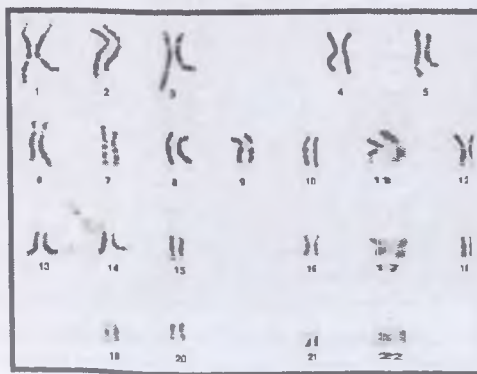 1 2 3 4 5
6 7 8 9 10 12
13 14 15 16 18
19 20 21 22